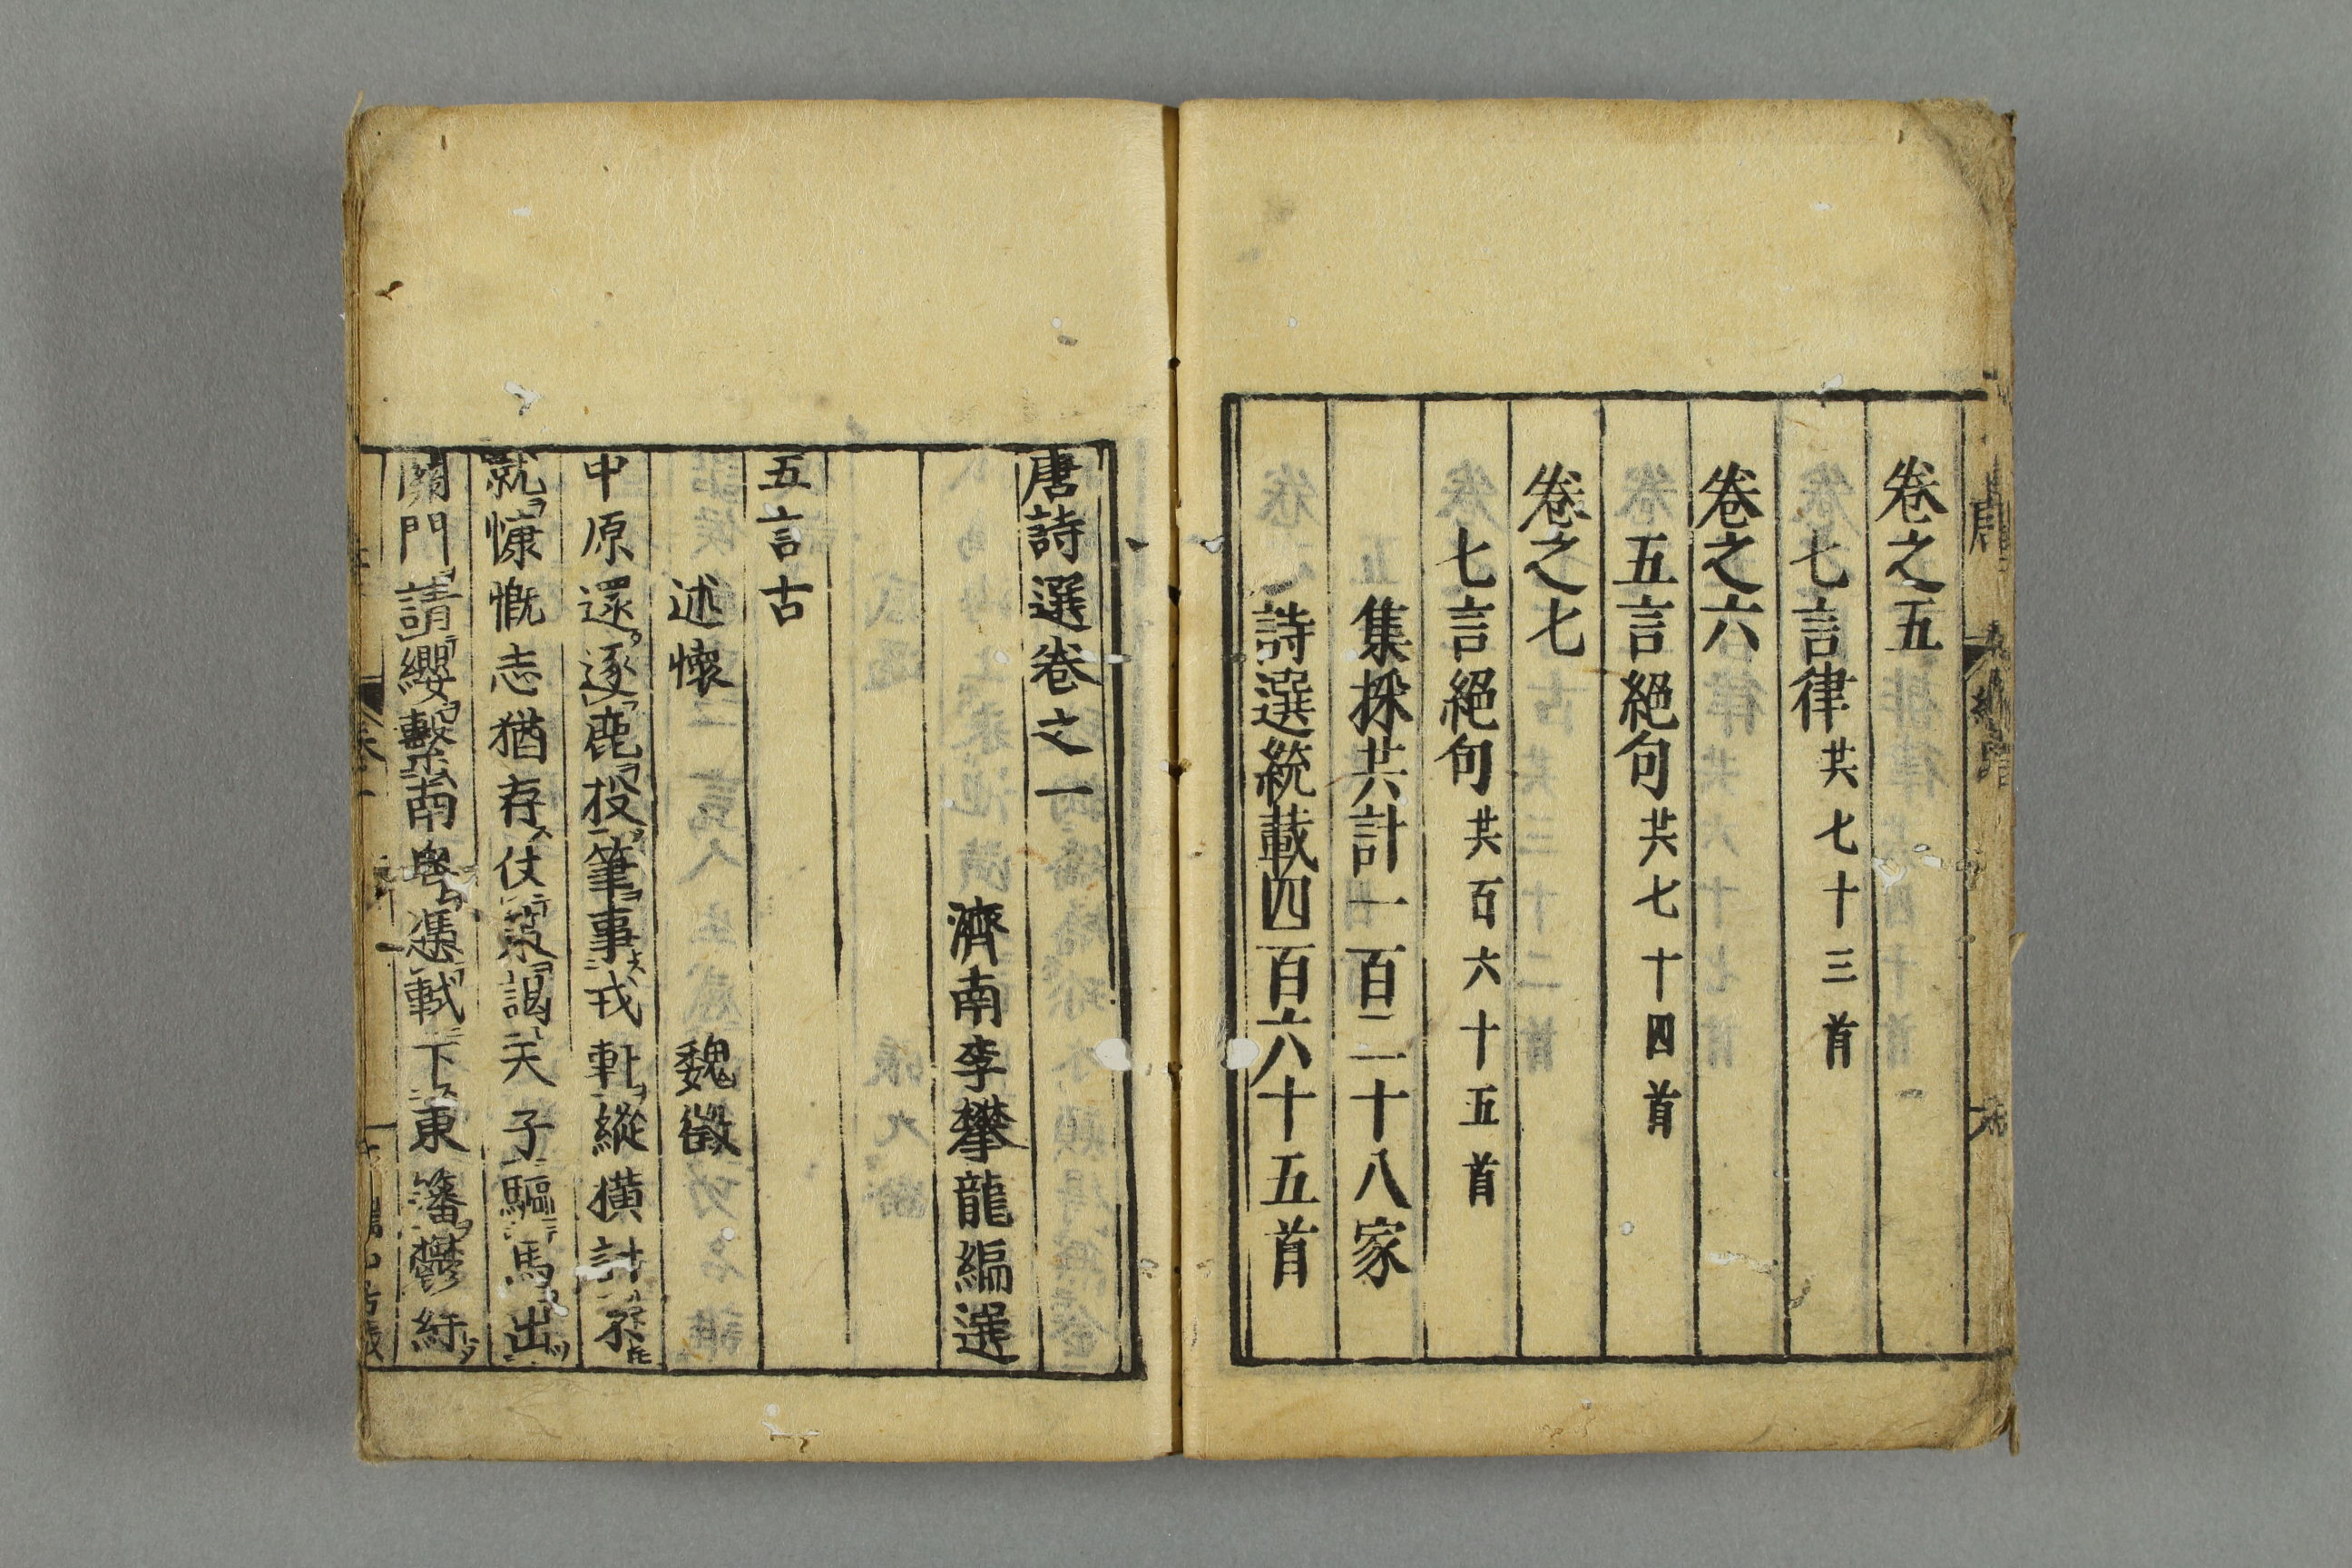 卷之五
七言律共七十三首
卷之六
五言絕句共七十四首
卷之七
七言絕句共百六十五首
集採共計一百二十八家
詩選統載四百六十五首
唐詩選卷之一
濟南李攀龍編選
五言古
述懷 魏徵
中原還逐鹿投筆事戎軒縱橫計不
就慷慨志猶存仗策謁天子驅馬出
關門請纓繫南粵憑軾下東藩鬱紆